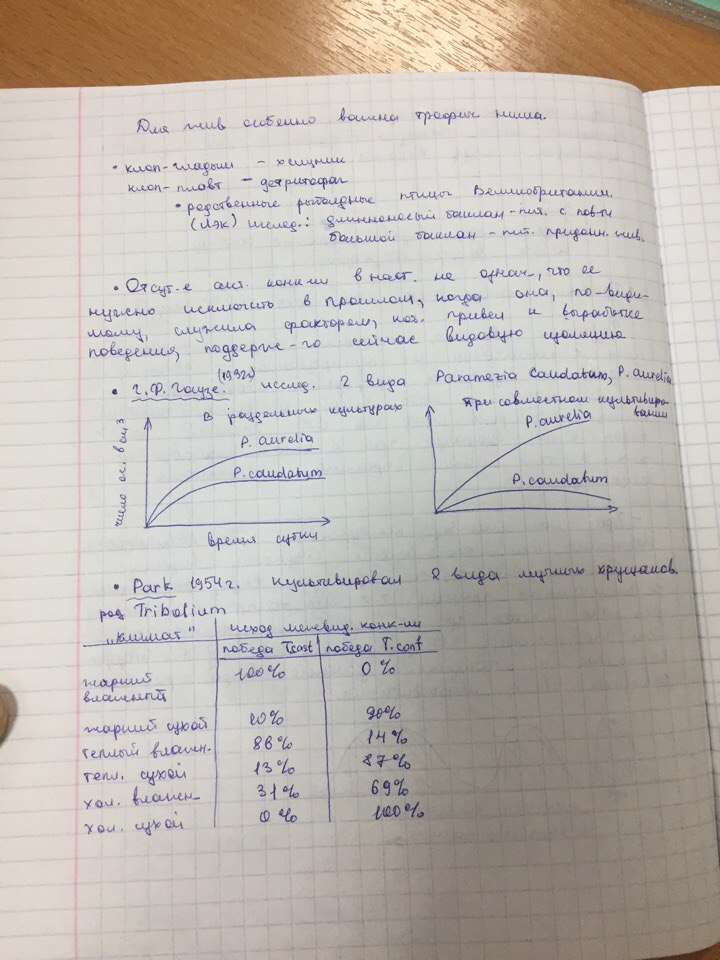 Для жив особенно важна трофич ниша.
• клоп-гладыш – хищник
клоп-плавт – детритофаг
• родственные рыбоядные птицы Великобритании.
(Лэк) исслед.: длинноносый баклан – пит. с пов-ти
большой баклан – пит. придонн. жив.
• Отсут-е акт. конк-ии в наст. не означ., что ее
нужно исключить в прошлом, когда она, по-види-
мому, служила фактором, кот. привел к выработке
поведения, поддерж-го сейчас видовую изоляцию
• Г.Ф. Гаузе (1932г) исслед. 2 вида Paramezia caudatum, P. aurelia
в раздельных культурах
при совместном культивиро-
вании
число ос. в см3
P. aurelia
P. caudatum
время сутки
P. aurelia
P. caudatum
• Park 1954г. культивировал 2 вида мучных хрущаков
род Tribolium
„климат" исход межвид. конк-ии
победа Tcast победа T.conf
жаркий
влажный 100% 0%
жаркий сухой 10% 90%
теплый влажн. 86% 14%
тепл. сухой 13% 87%
хол. влажн 31% 69%
хол. сухой 0% 100%